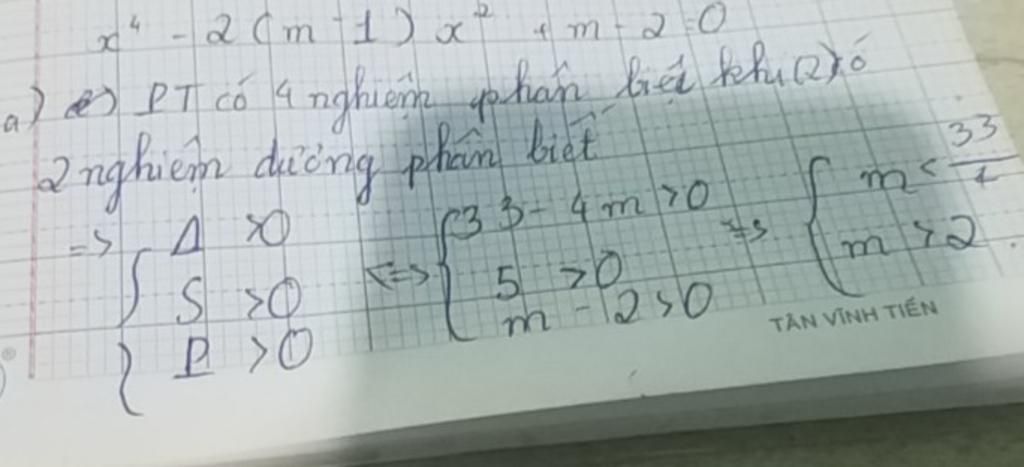 x⁴ - 2(m - 1)x² + m - 2 = 0
a) PT có 4 nghiệm phân biệt khi (2) có
2 nghiệm dương phân biệt
=> { Δ > 0 <=> { 33 - 4m > 0 => { m < 33/4
S > 0 5 > 0 m > 2
P > 0 m - 2 > 0
TÂN VĨNH TIẾN